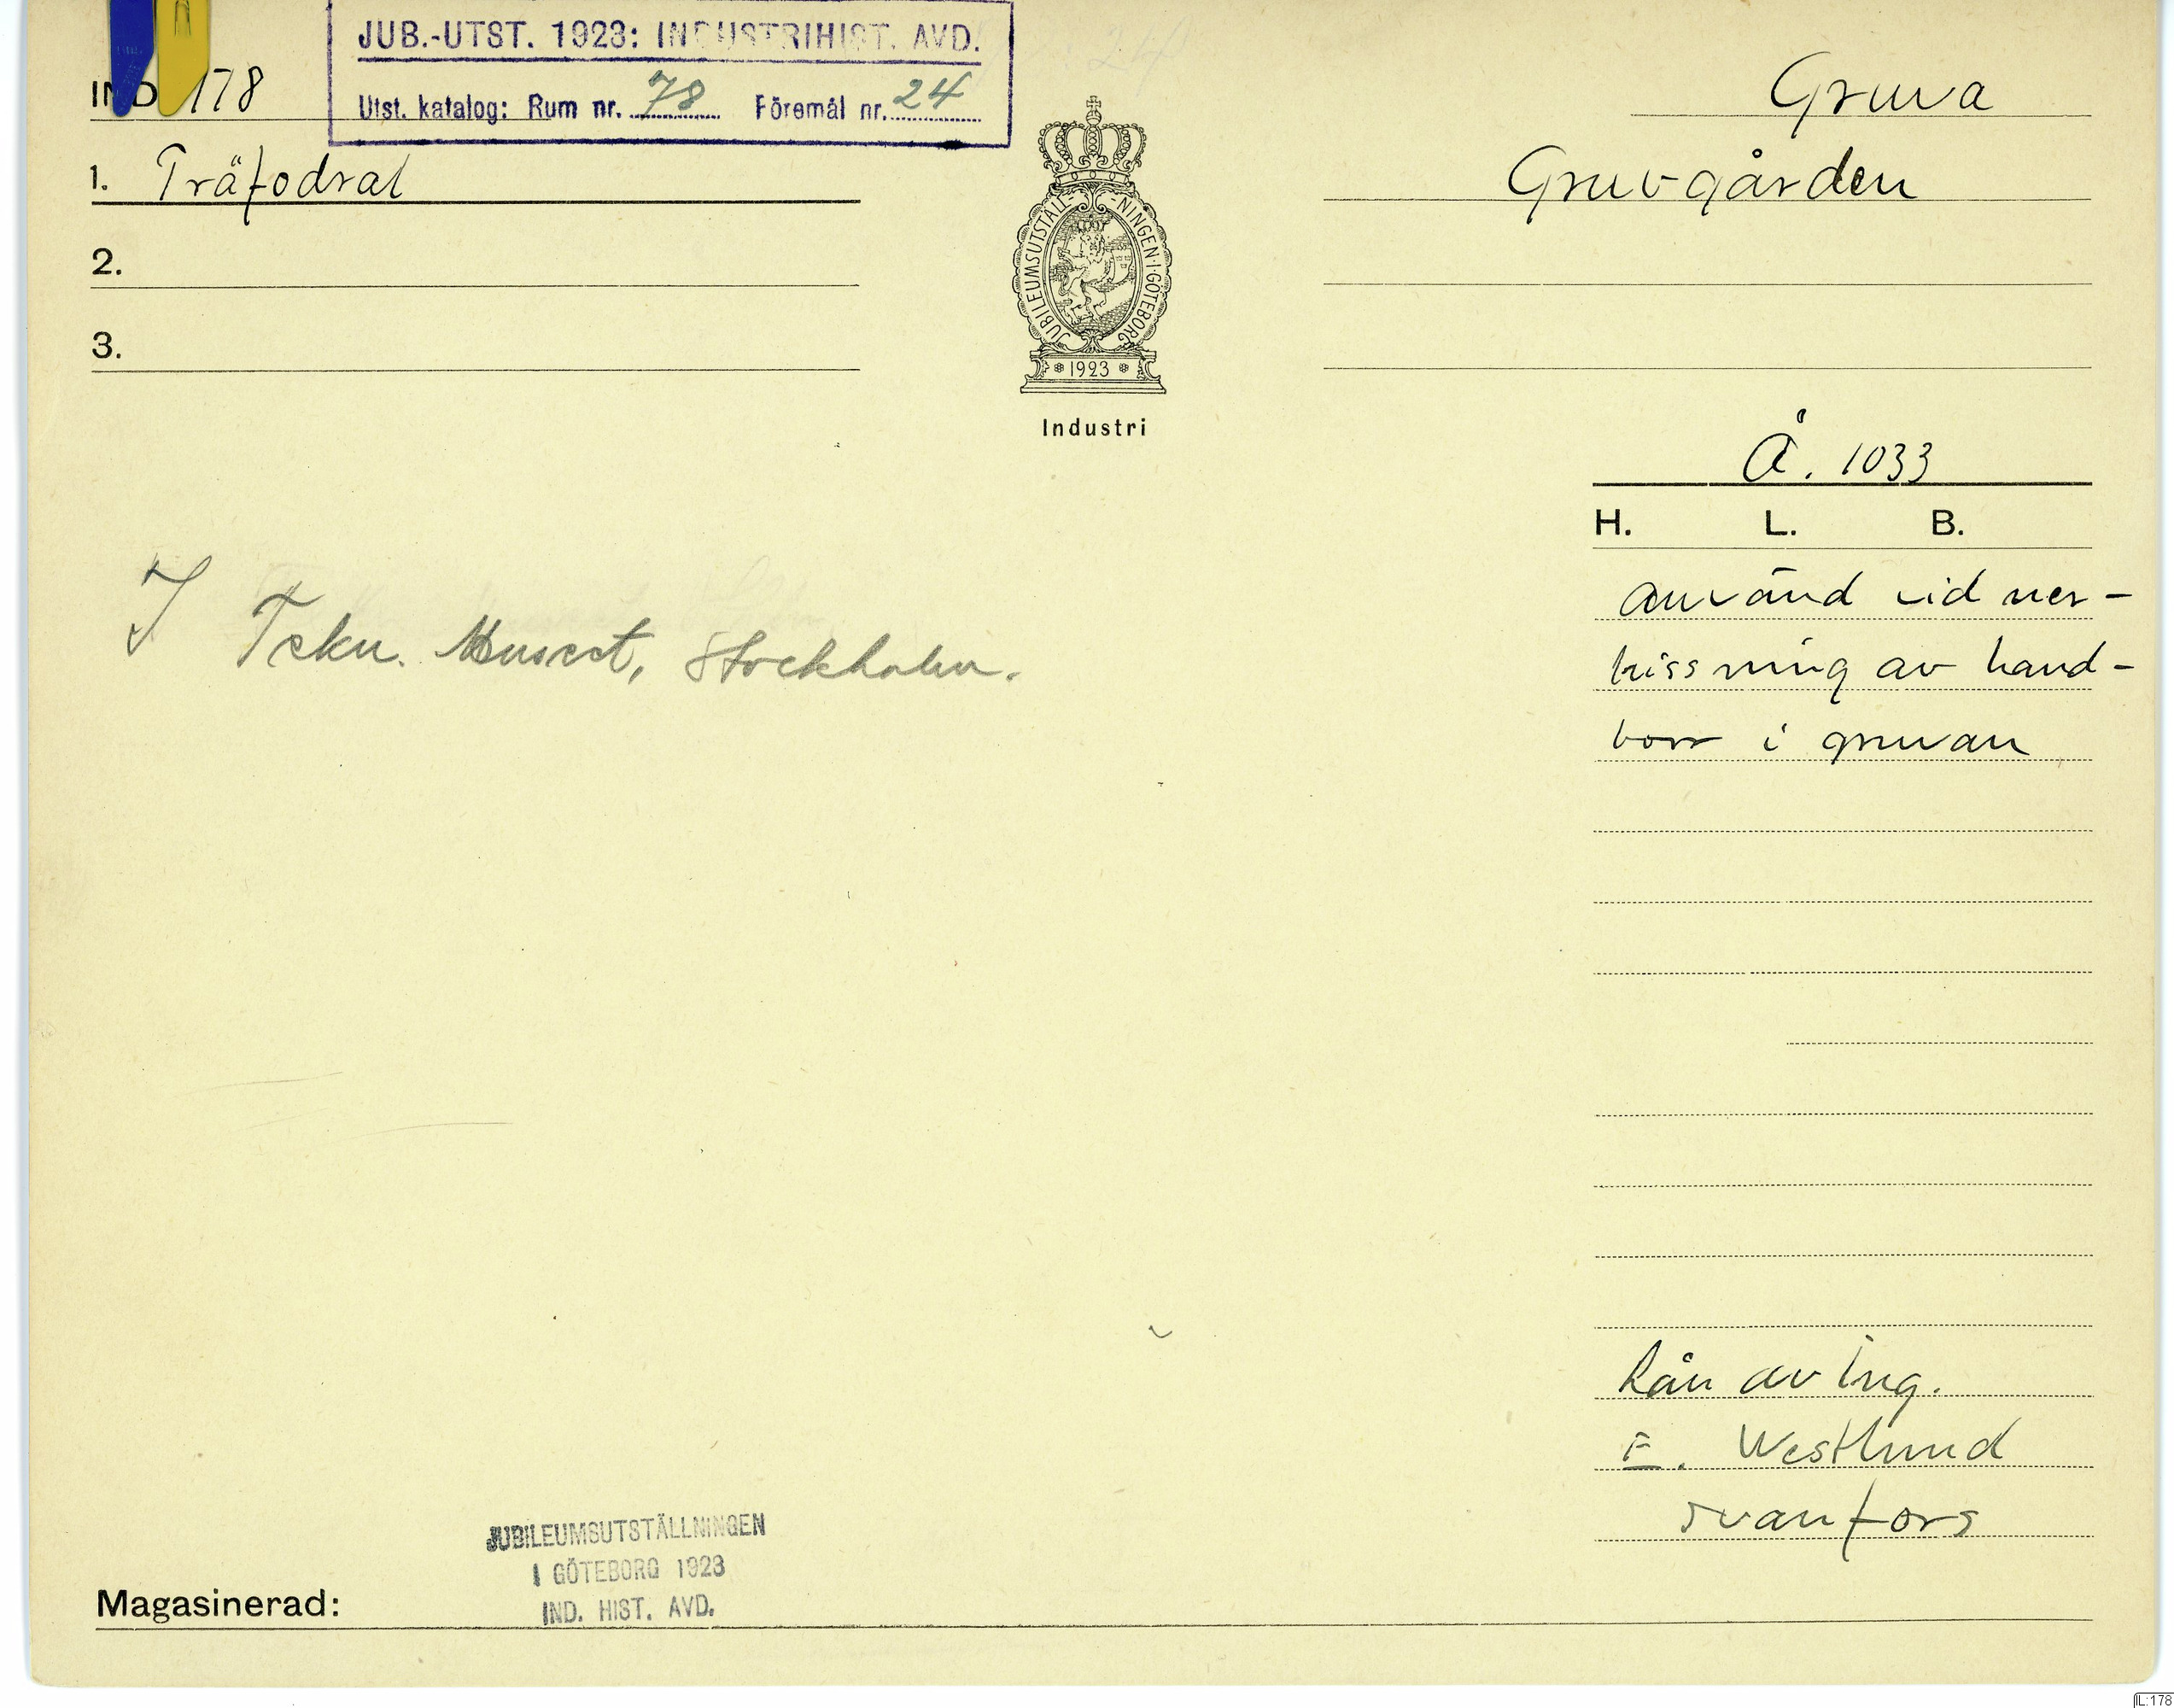 JUB.-UTST. 1923: INDUSTRIHIST. AVD.
Utst. katalog: Rum nr. 78 Föremål nr. 24
IND 178
1. Träfodral
2.
3.
JUBILEUMSUTSTÄLL-NINGEN·I·GÖTEBORG
1923
Industri
Gruva
Gruvgården
Å. 1033
H. L. B.
Använd vid ner-
hissning av hand-
borr i gruvan
I Tekn. Museet, Stockholm.
Lån av Ing.
E. Westlund
Svanfors
JUBILEUMSUTSTÄLLNINGEN
I GÖTEBORG 1923
IND. HIST. AVD.
Magasinerad:
IL:178